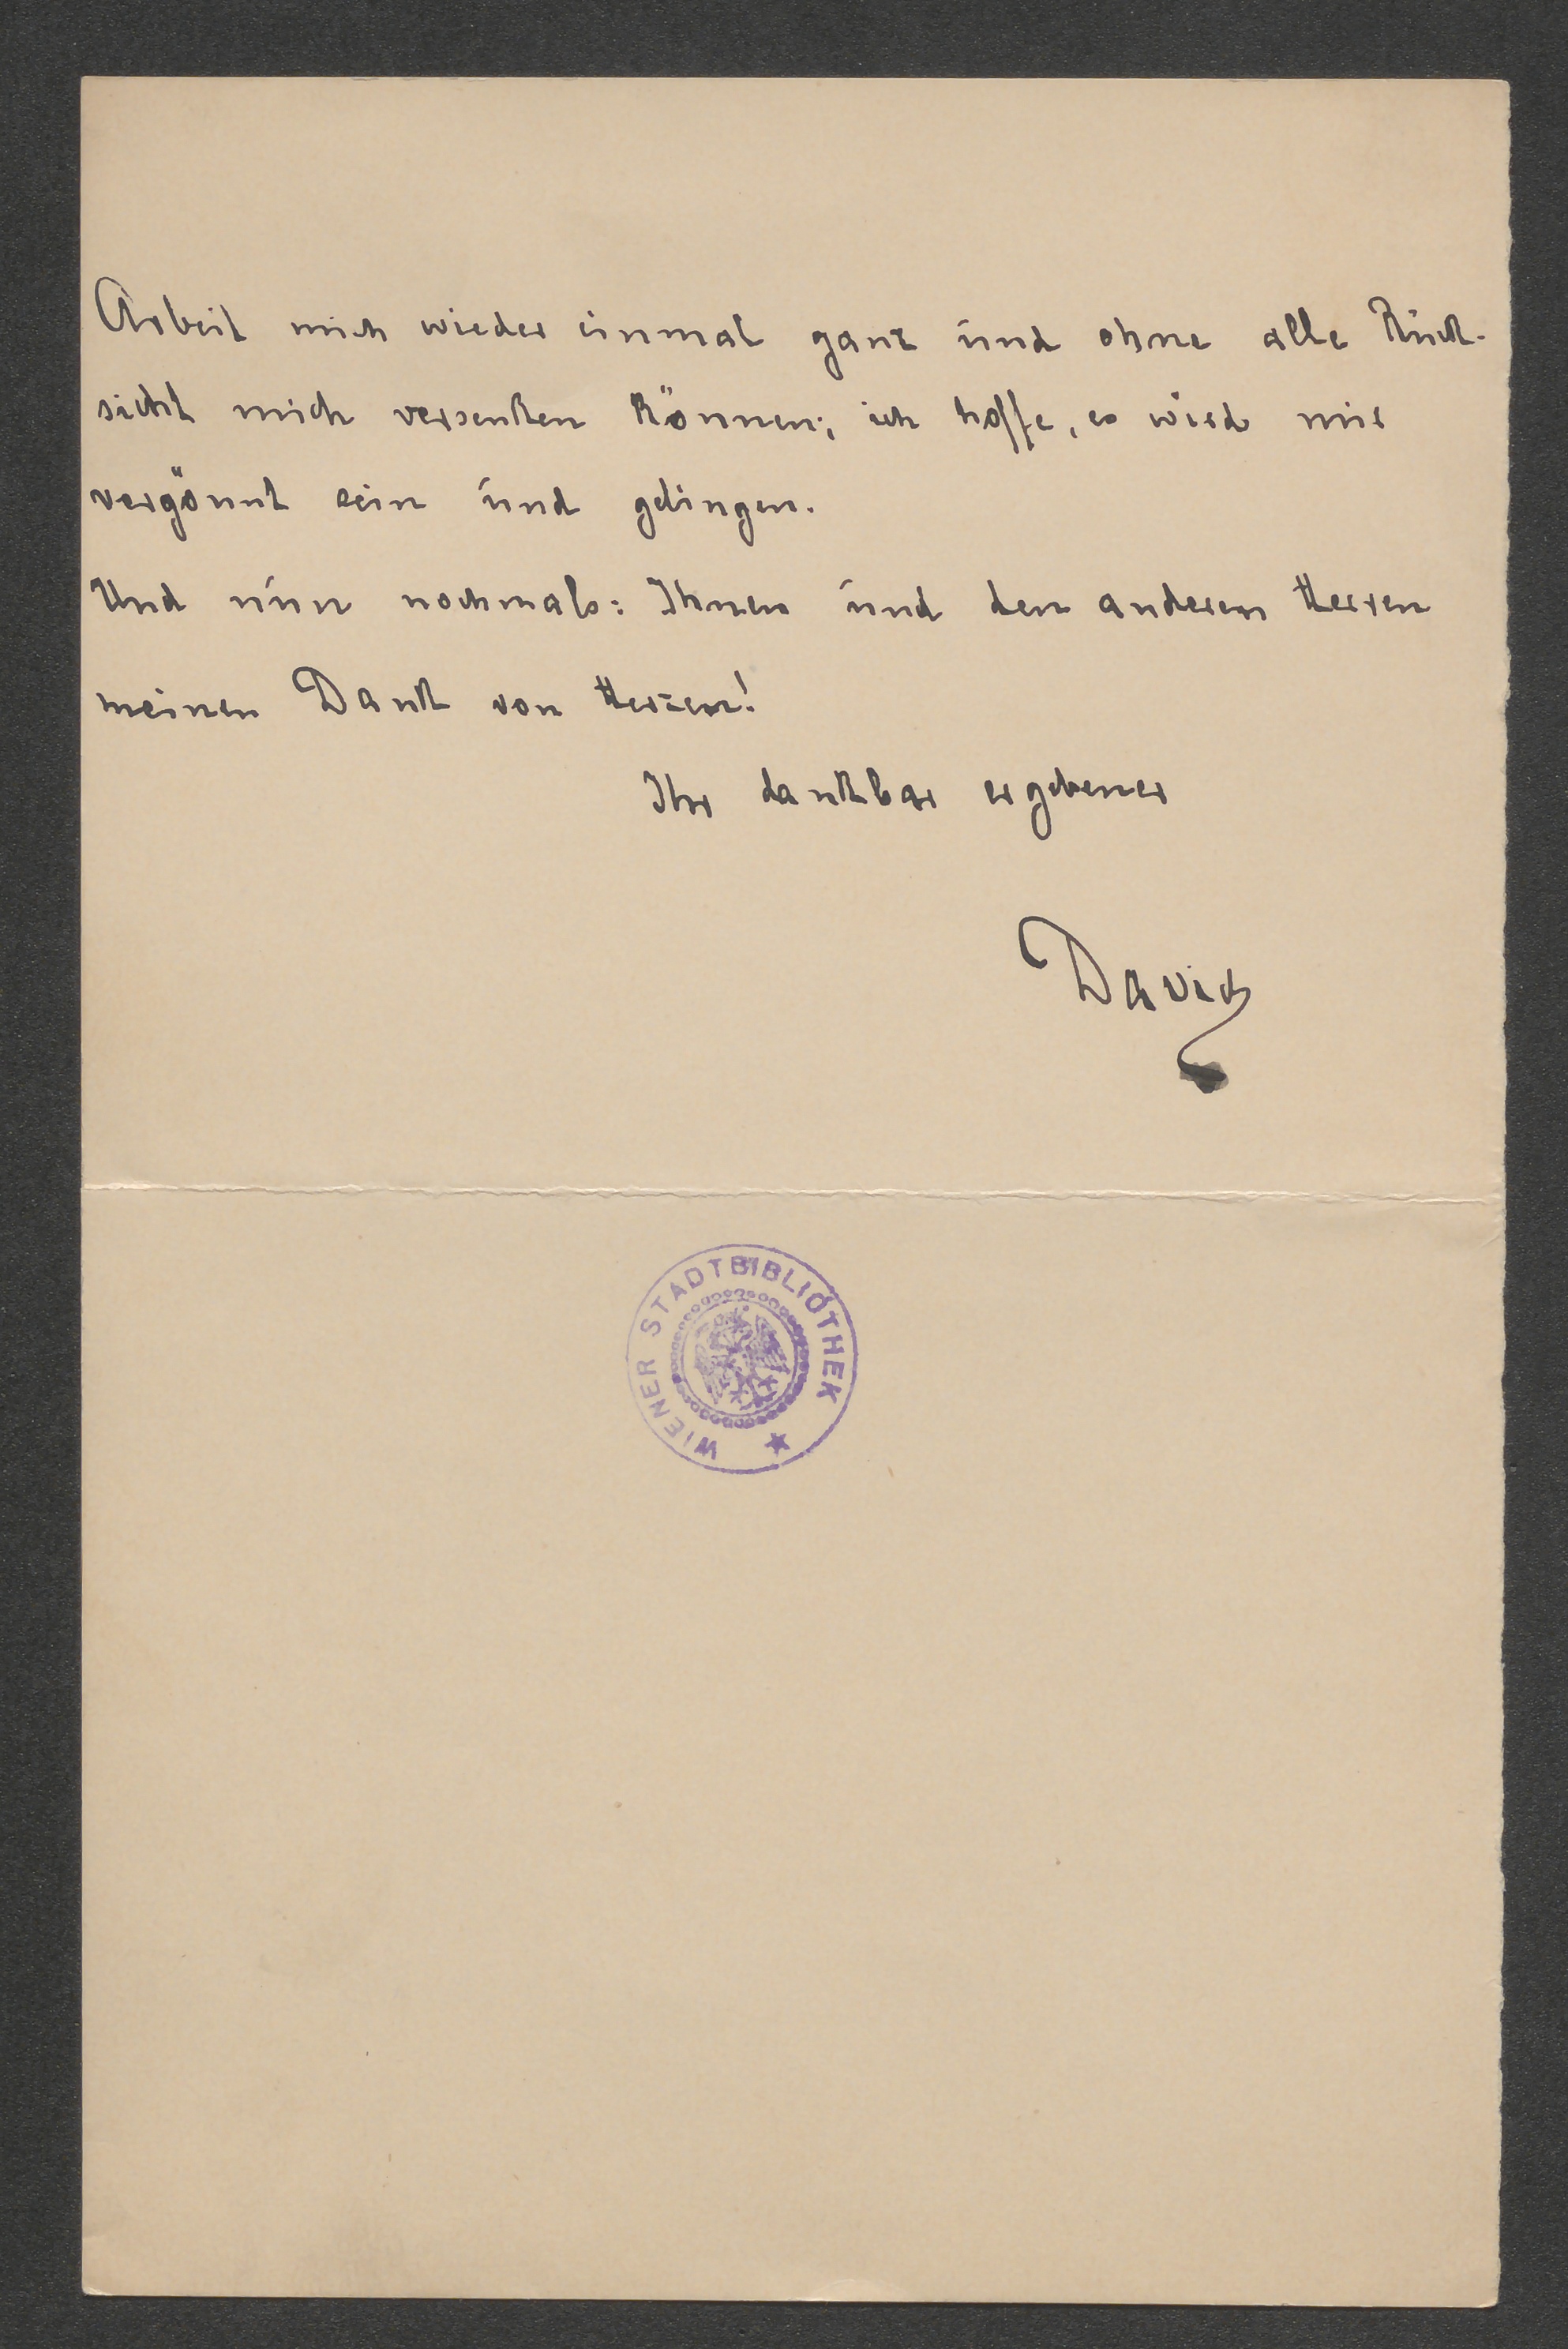 Arbeit mich wieder einmal ganz und ohne alle Rück-
sicht mich versenken können; ich hoffe, es wird mir
vergönnt sein und gelingen.
Und nun nochmals: Ihnen und den anderen Herren
meinen Dank von Herzen!
Ihr dankbar ergebener
David
WIENER STADTBIBLIOTHEK